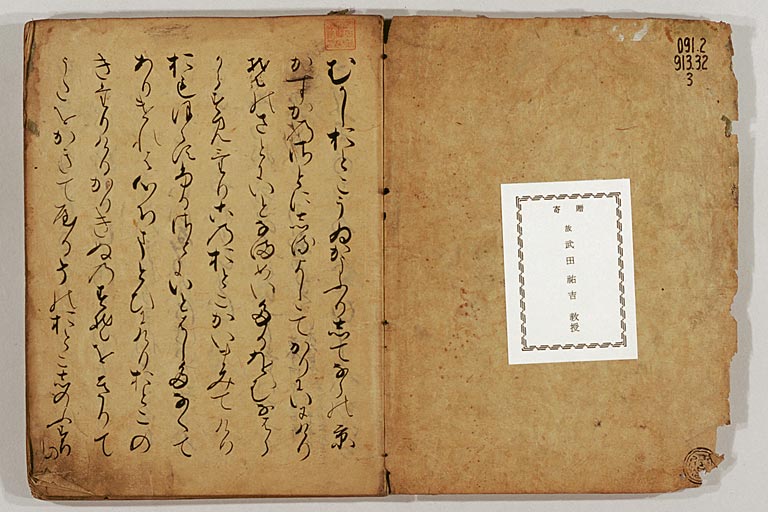 091.2
913.32
3
寄贈
故
武田祐吉 教授
むかしおとこうゐかうふりしてならの京
かすかのさとにしるよしゝてかりにいにけり
そのさとにいとなまめいたるをむなはら
からすみけりこのおとこかいまみてけり
おもほえすふるさとにいとはしたなくて
ありけれは心ちまとひにけりおとこの
きたりけるかりきぬのすそをきりて
うたをかきてやるそのおとこしのふすり
の